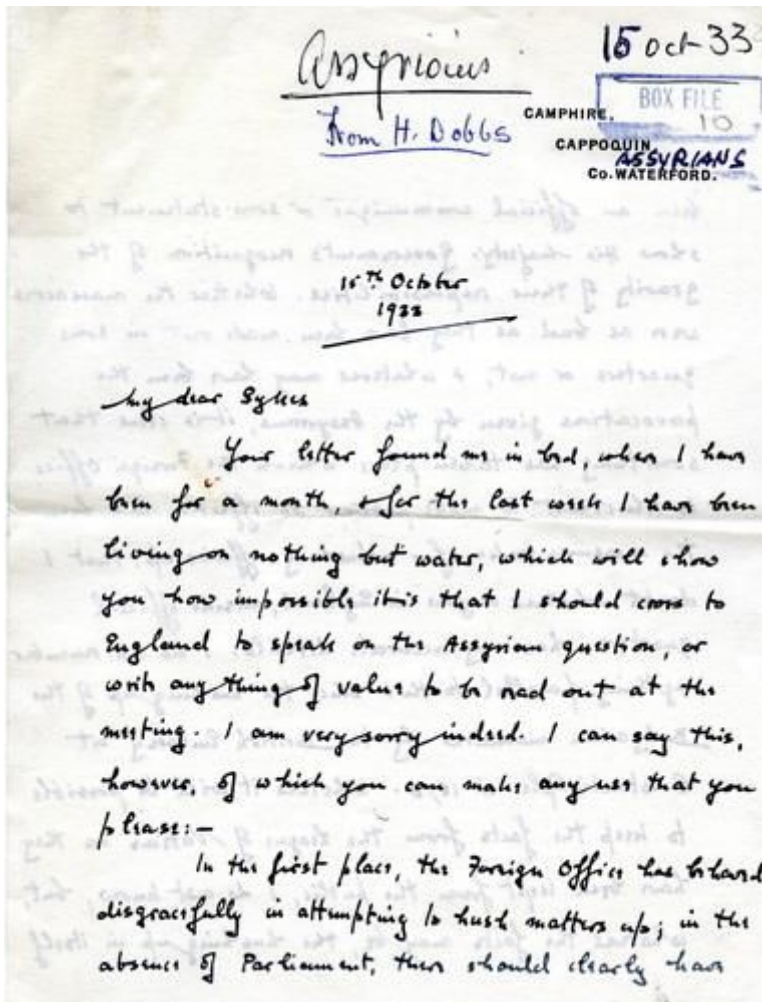 Assyrians
15 Oct 33
From H. Dobbs
BOX FILE
10
ASSYRIANS
CAMPHIRE,
CAPPOQUIN,
Co. WATERFORD.
15th October
1933
My dear Sykes
Your letter found me in bed, where I have
been for a month, & for the last week I have been
living on nothing but water, which will show
you how impossible it is that I should cross to
England to speak on the Assyrian question, or
write anything of value to be read out at the
meeting. I am very sorry indeed. I can say this,
however, of which you can make any use that you
please:—
In the first place, the Foreign Office has behaved
disgracefully in attempting to hush matters up; in the
absence of Parliament, there should clearly have